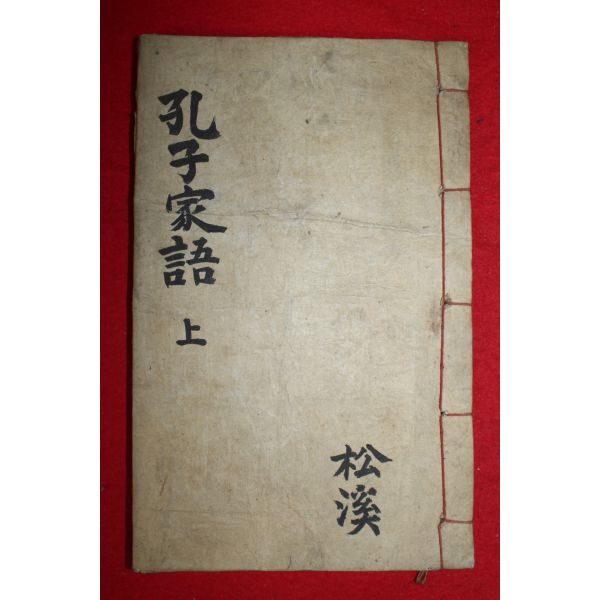 孔子家語
上
松溪